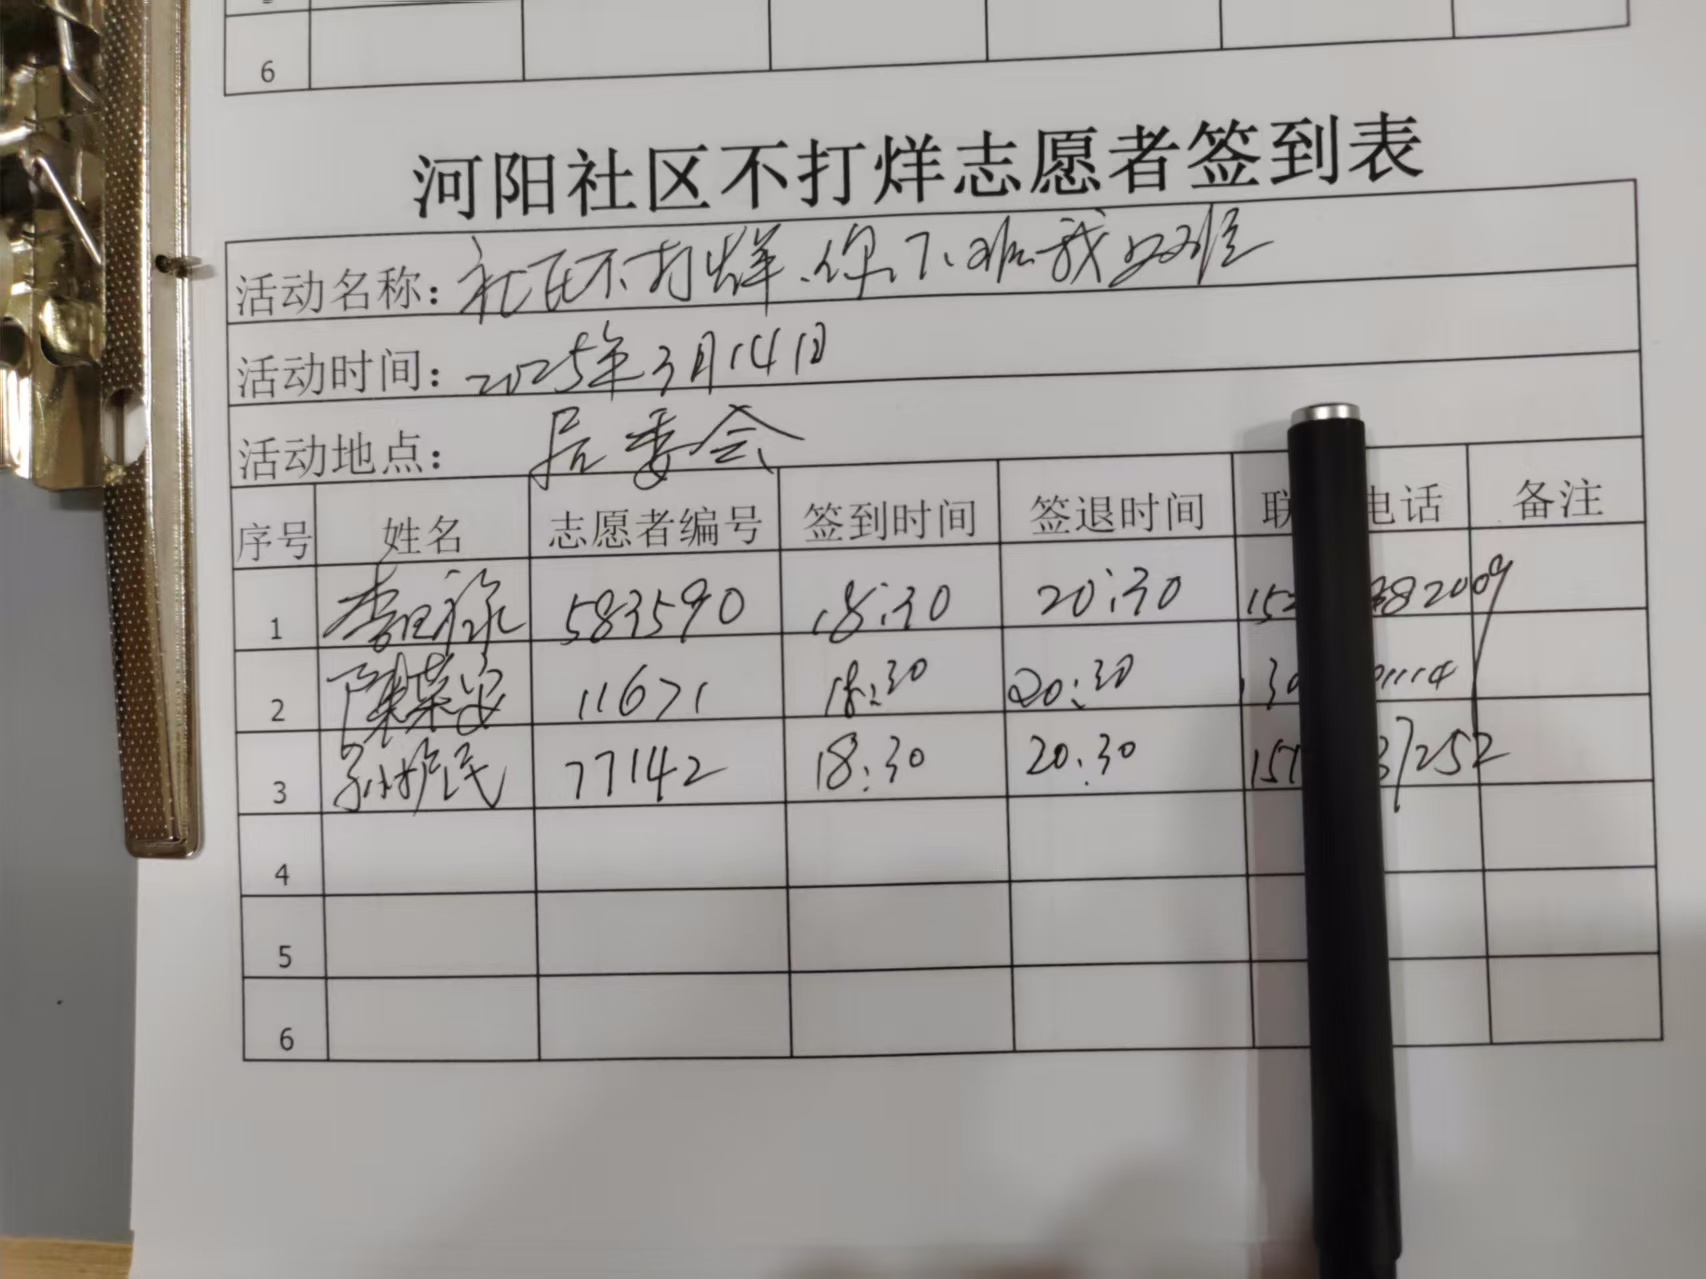 6
河阳社区不打烊志愿者签到表
活动名称：社区不打烊、你下班我上班
活动时间：2025年3月14日
活动地点： 居委会
序号 姓名 志愿者编号 签到时间 签退时间 联 电话 备注
1 李 583590 18:30 20:30 15 82009
2 陳荣安 11671 18:30 20:30 130 01114
3 孙 民 77142 18:30 20:30 151 37252
4
5
6